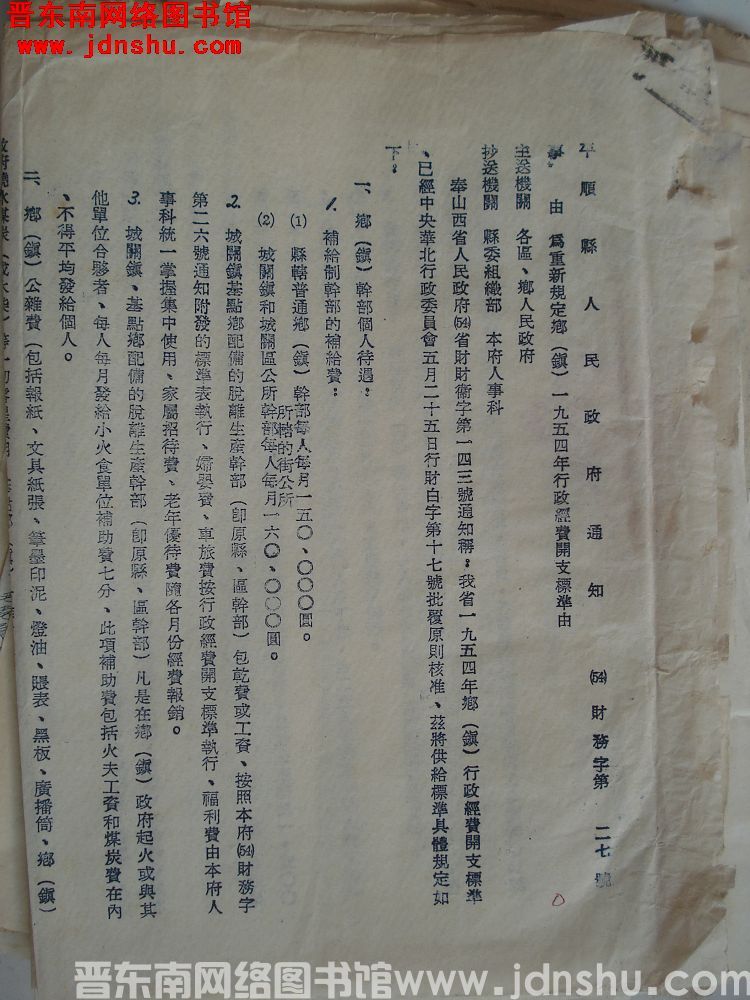 晋东南网络图书馆
www.jdnshu.com
平順縣人民政府通知 (54)財務字第二七號
事由 為重新規定鄉(鎮)一九五四年行政經費開支標準由
主送機關 各區、鄉人民政府
抄送機關 縣委組織部 本府人事科
奉山西省人民政府(54)省財財衛字第一四三號通知稱:我省一九五四年鄉(鎮)行政經費開支標準
、已經中央華北行政委員會五月二十五日行財白字第十七號批覆原則核准、茲將供給標準具體規定如
下:
一、鄉(鎮)幹部個人待遇:
1.補給制幹部的補給費:
(1)縣轄普通鄉(鎮)幹部每人每月一五〇、〇〇〇圓。
(2)城關鎮和城關區公所所轄的街公所幹部每人每月一六〇、〇〇〇圓。
2.城關鎮基點鄉配備的脫離生產幹部(即原縣、區幹部)包乾費或工資、按照本府(54)財務字
第二六號通知附發的標準表執行、婦嬰費、車旅費按行政經費開支標準執行、福利費由本府人
事科統一掌握集中使用、家屬招待費、老年優待費隨各月份經費報銷。
3.城關鎮、基點鄉配備的脫離生產幹部(即原縣、區幹部)凡是在鄉(鎮)政府起火或與其
他單位合夥者、每人每月發給小火食單位補助費七分、此項補助費包括火夫工資和煤炭費在內
、不得平均發給個人。
二、鄉(鎮)公雜費(包括報紙、文具紙張、筆墨印泥、燈油、賬表、黑板、廣播筒、鄉(鎮)
晋东南网络图书馆www.jdnshu.com